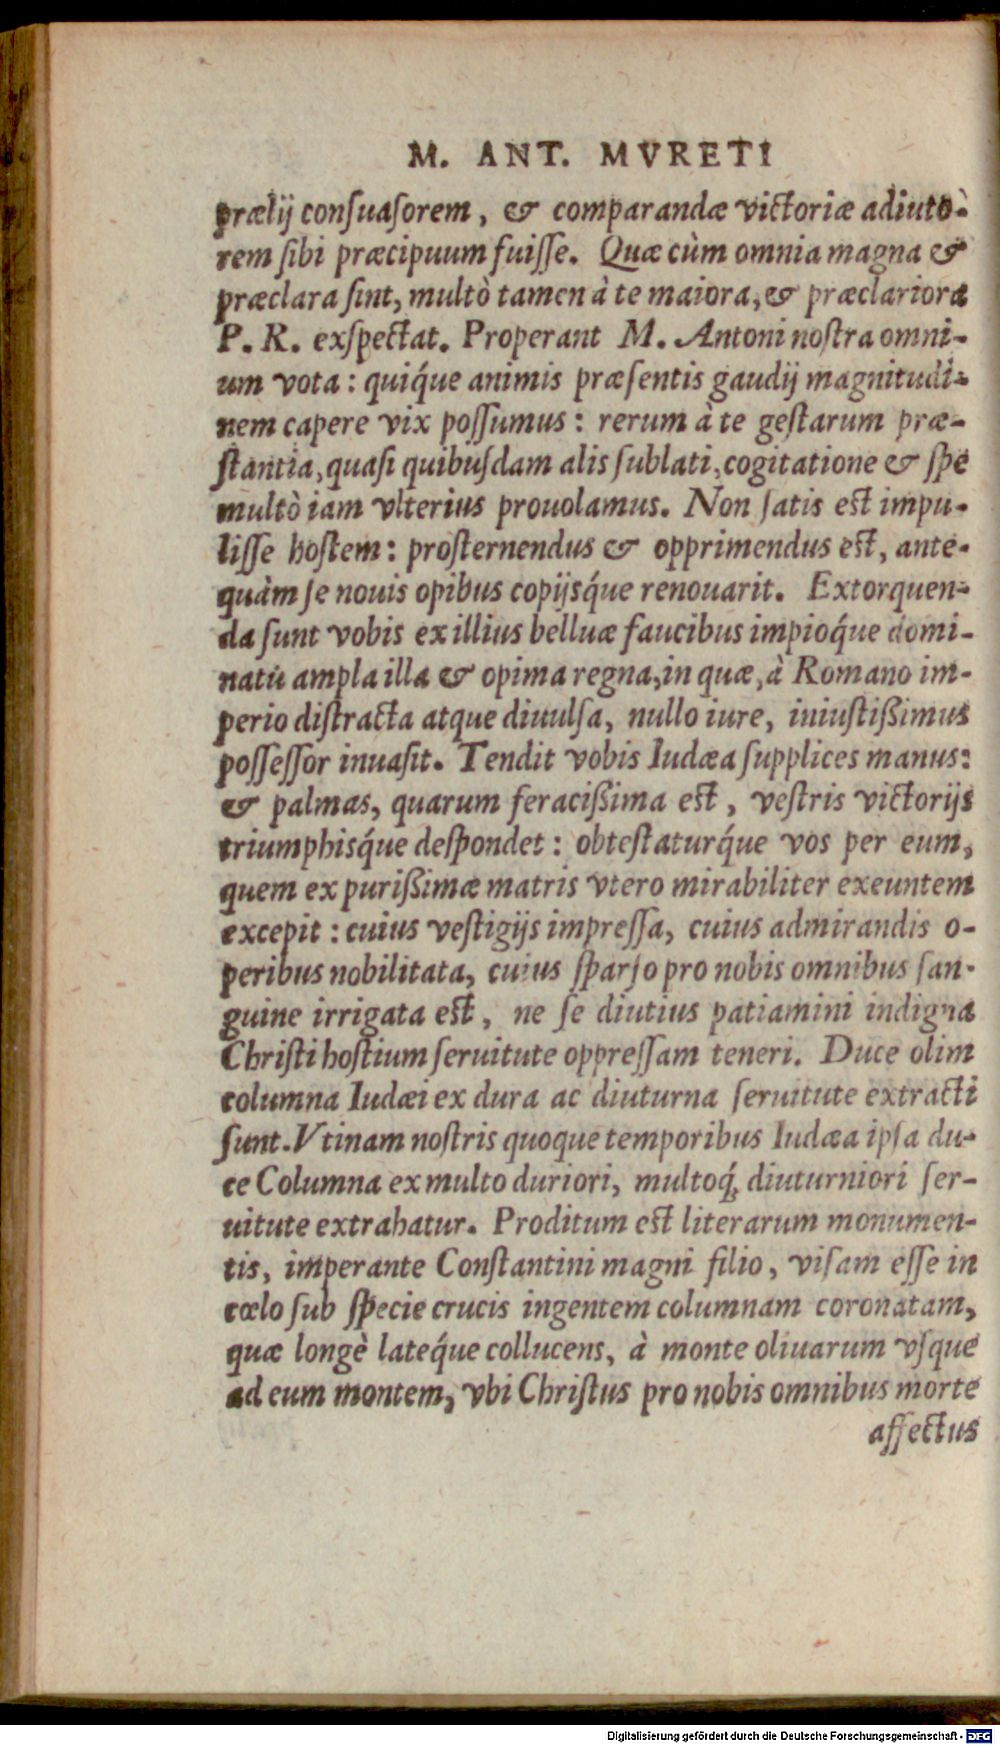 M. ANT. MVRETI
prælij conſuaſorem, & comparandæ victoriæ adiuto-
rem ſibi præcipuum fuiſſe. Quæ cùm omnia magna &
præclara ſint, multò tamen à te maiora, & præclariora
P. R. exſpectat. Properant M. Antoni noſtra omni-
um vota: quiq́ue animis præſentis gaudij magnitudi-
nem capere vix poſſumus: rerum à te geſtarum præ-
ſtantia, quaſi quibuſdam alis ſublati, cogitatione & ſpe
multò iam vlterius prouolamus. Non ſatis est impu-
liſſe hoſtem: proſternendus & opprimendus est, ante-
quàm ſe nouis opibus copijsq́ue renouarit. Extorquen-
da ſunt vobis ex illius belluæ faucibus impioq́ue domi-
natu ampla illa & opima regna, in quæ, à Romano im-
perio diſtracta atque diuulſa, nullo iure, iniuſtißimus
poſſeſſor inuaſit. Tendit vobis Iudæa ſupplices manus:
& palmas, quarum feracißima est, veſtris victorijs
triumphisq́ue deſpondet: obteſtaturq́ue vos per eum,
quem ex purißimæ matris vtero mirabiliter exeuntem
excepit: cuius veſtigijs impreſſa, cuius admirandis o-
peribus nobilitata, cuius ſparſo pro nobis omnibus ſan-
guine irrigata est, ne ſe diutius patiamini indigna
Chriſti hoſtium ſeruitute oppreſſam teneri. Duce olim
columna Iudæi ex dura ac diuturna ſeruitute extracti
ſunt. Vtinam noſtris quoque temporibus Iudæa ipſa du-
ce Columna ex multo duriori, multoq́; diuturniori ſer-
uitute extrahatur. Proditum est literarum monumen-
tis, imperante Conſtantini magni filio, viſam eſſe in
cœlo ſub ſpecie crucis ingentem columnam coronatam,
quæ longè lateq́ue collucens, à monte oliuarum vſque
ad eum montem, vbi Chriſtus pro nobis omnibus morte
affectus
Digitalisierung gefördert durch die Deutsche Forschungsgemeinschaft - DFG